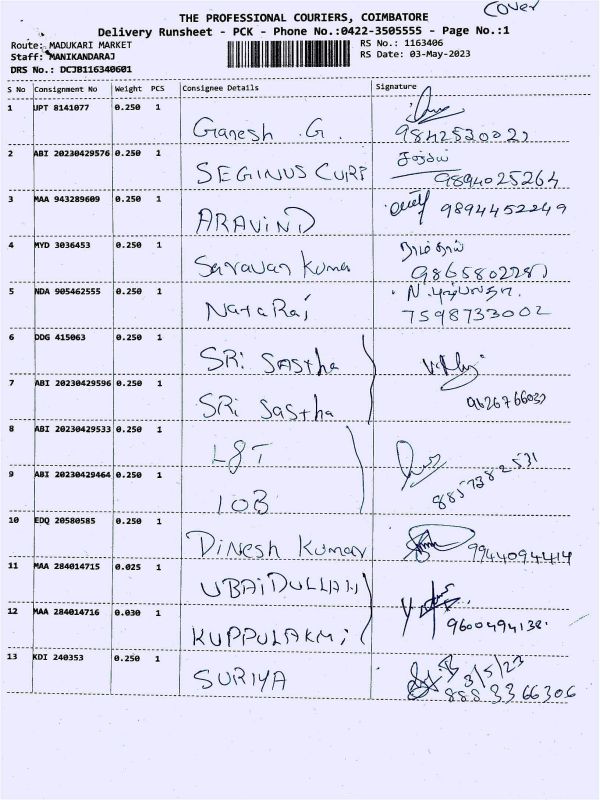 Cover
THE PROFESSIONAL COURIERS, COIMBATORE
Delivery Runsheet - PCK - Phone No.:0422-3505555 - Page No.:1
Route: MADUKARI MARKET
RS No.: 1163406
Staff: MANIKANDARAJ
RS Date: 03-May-2023
DRS No.: DCJB116340601
S No Consignment No Weight PCS Consignee Details Signature
1 UPT 8141077 0.250 1 Ganesh G.
2 ABI 20230429576 0.250 1 SEGINUS 9894025264
3 MAA 943289609 0.250 1 ARAVIND 9894452249
4 MYD 3036453 0.250 1 Saravan Kumar
5 NDA 905462555 0.250 1 NataRaj 7598733002
6 DDG 415063 0.250 1 SRi SAStha
7 ABI 20230429596 0.250 1 SRi SaStha
8 ABI 20230429533 0.250 1 L&T
9 ABI 20230429464 0.250 1 IOB
10 EDQ 20580585 0.250 1 DiNesh Kumar 9944094414
11 MAA 284014715 0.025 1 UBAiDULLAH
12 MAA 284014716 0.030 1 KUPPULAKMi
13 KDI 240353 0.250 1 SURIYA 3/5/23
8883366306